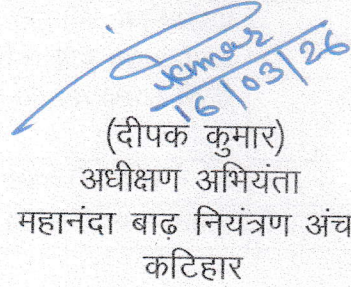 Kumar
16/03/26
(दीपक कुमार)
अधीक्षण अभियंता
महानंदा बाढ़ नियंत्रण अंच
कटिहार